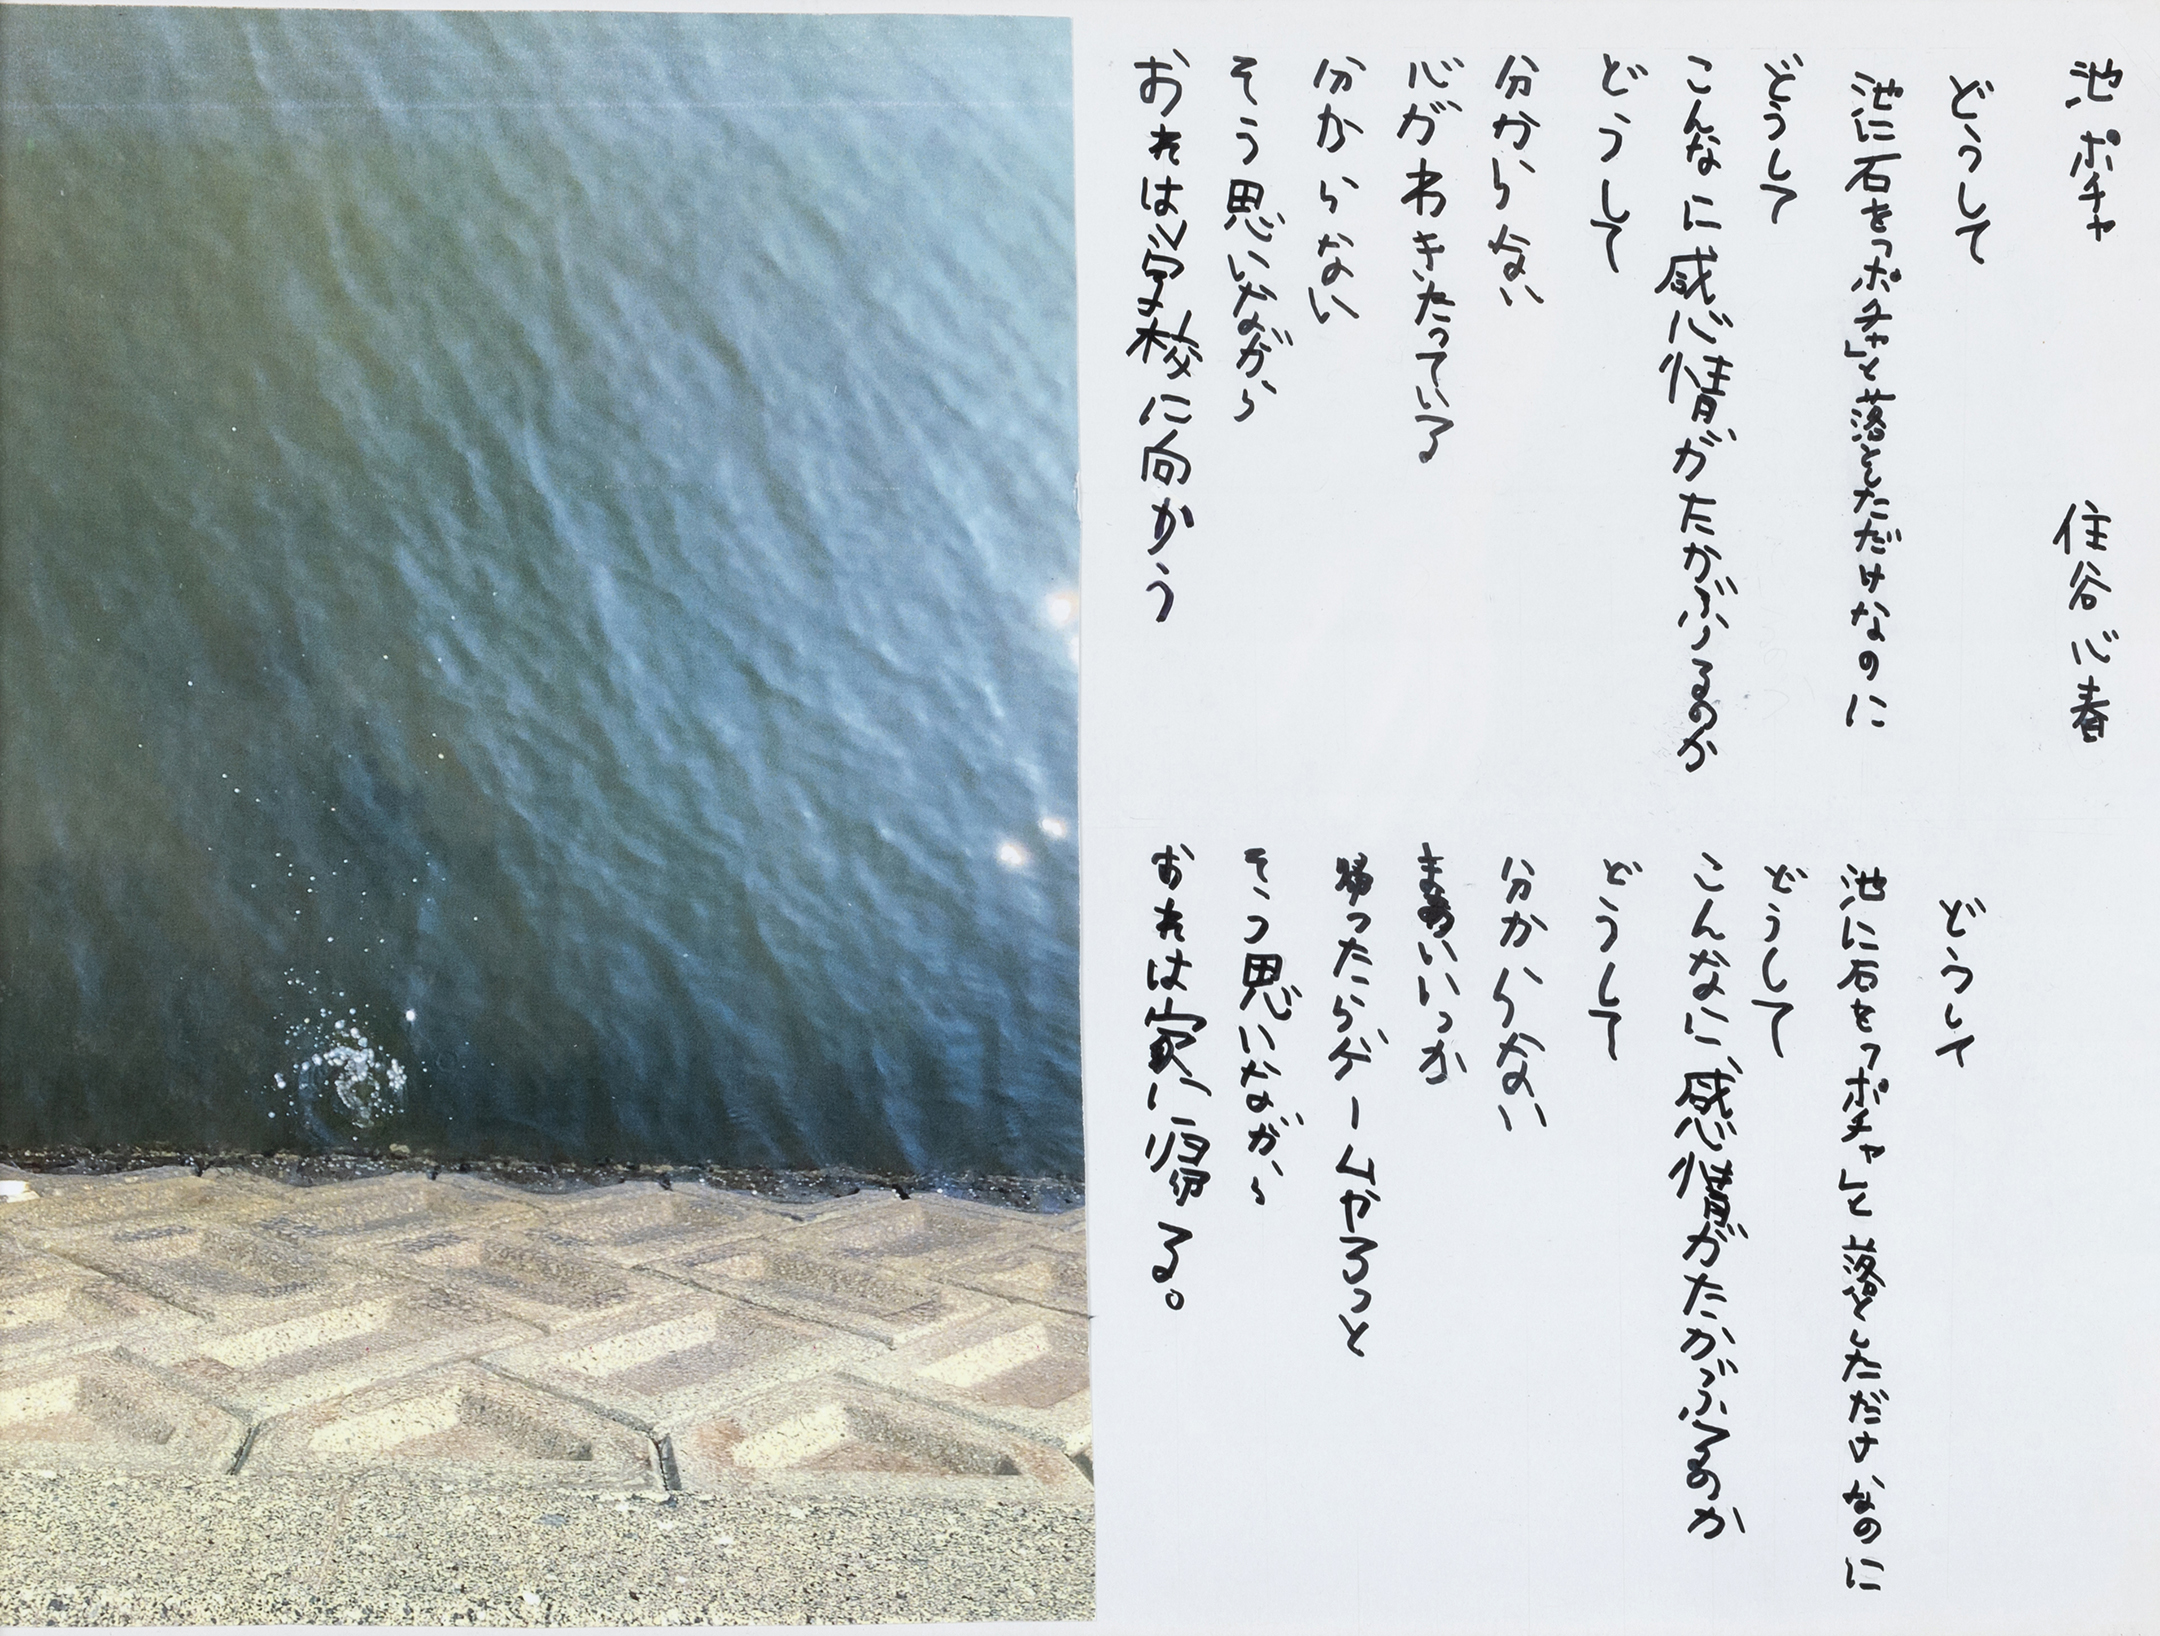 池ポチャ
住谷心春
どうして
池に石を「ポチャ」と落としただけなのに
どうして
こんなに感情がたかぶるのか
どうして
分からない
心がわきたっている
分からない
そう思いながら
おれは学校に向かう
どうして
池に石を「ポチャ」と落としただけなのに
どうして
こんなに感情がたかぶるのか
どうして
分からない
まぁいいっか
帰ったらゲームやろっと
そう思いながら
おれは家に帰る。